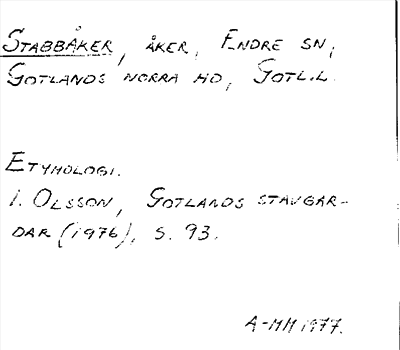 STABBÅKER, ÅKER, ENDRE SN,
GOTLANDS NORRA HD, GOTL.L.
ETYMOLOGI.
I. OLSSON, GOTLANDS STAVGAR-
DAR (1976), S. 93.
A-MM 1977.